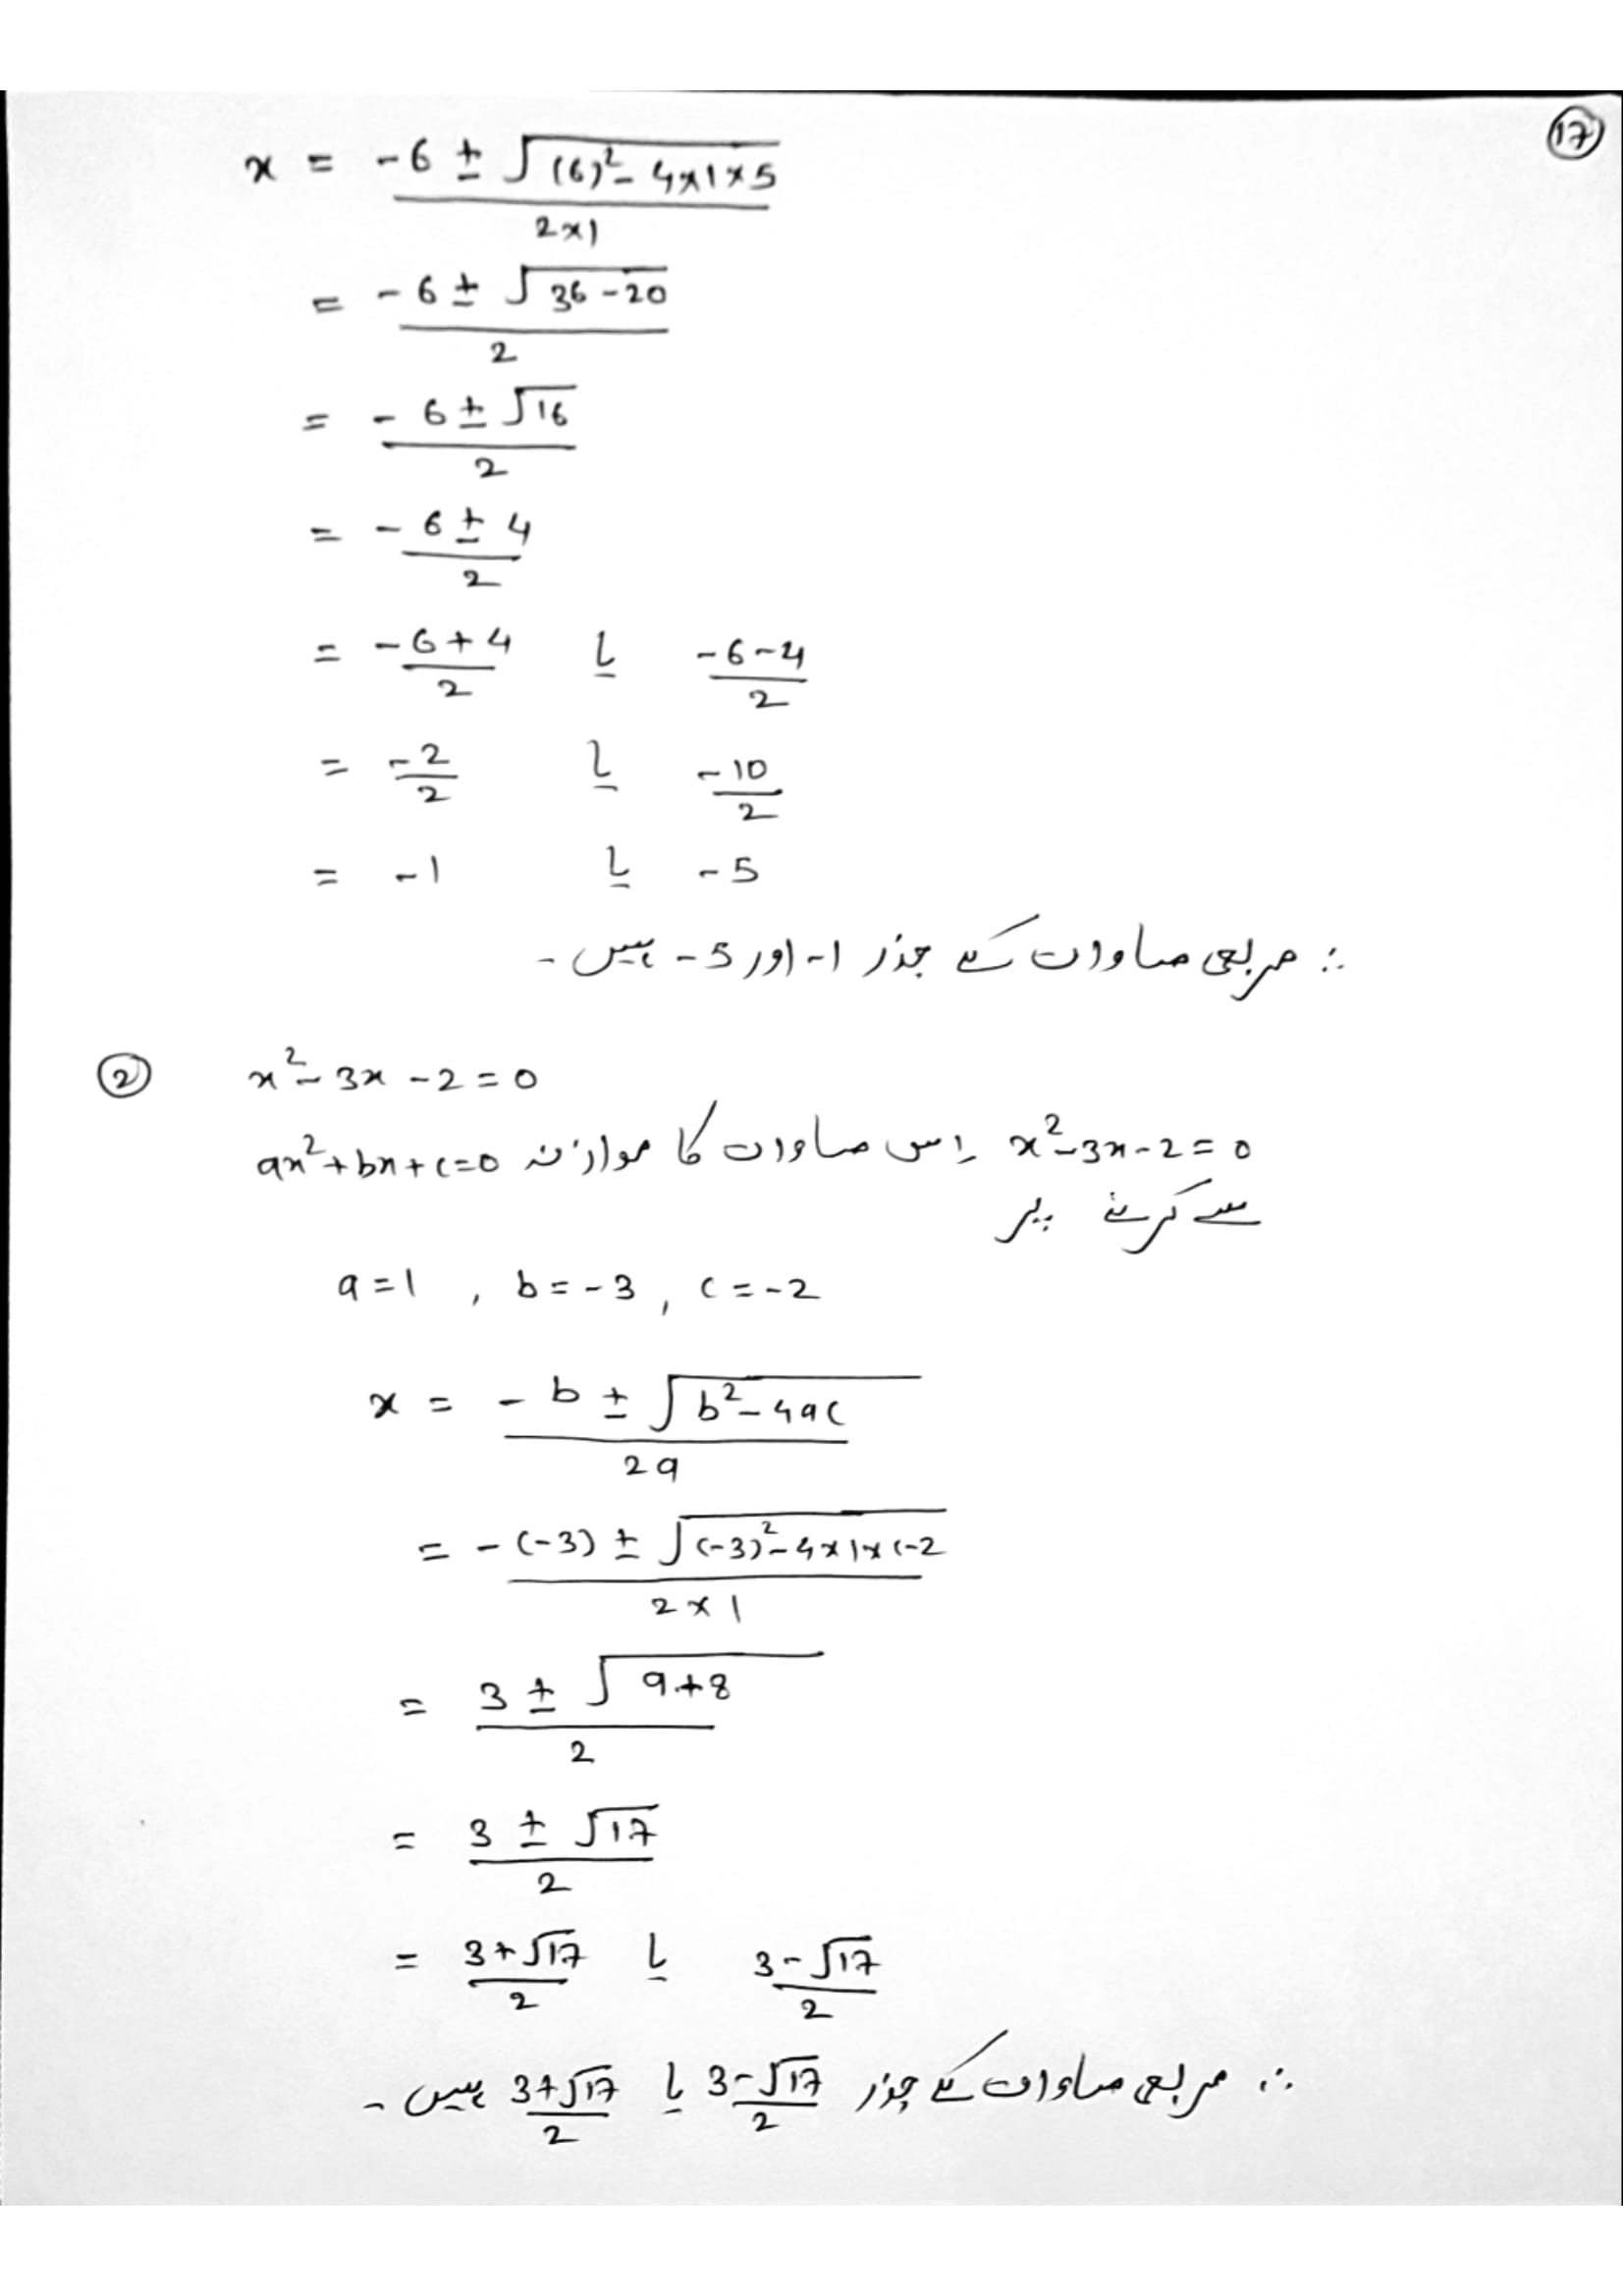 17
x = (-6 ± √((6)² - 4×1×5)) / (2×1)
= (-6 ± √(36-20)) / 2
= (-6 ± √16) / 2
= (-6 ± 4) / 2
= (-6+4)/2 یا (-6-4)/2
= -2/2 یا -10/2
= -1 یا -5
∴ مربعی مساوات کے جذر 1- اور 5- ہیں۔
② x² - 3x - 2 = 0
x² - 3x - 2 = 0 اس مساوات کا موازنہ ax² + bx + c = 0
سے کرنے پر
a = 1 , b = -3 , c = -2
x = (-b ± √(b² - 4ac)) / 2a
= (-(-3) ± √((-3)² - 4×1×(-2)) / (2×1)
= (3 ± √(9+8)) / 2
= (3 ± √17) / 2
= (3+√17)/2 یا (3-√17)/2
∴ مربعی مساوات کے جذر (3-√17)/2 یا (3+√17)/2 ہیں۔